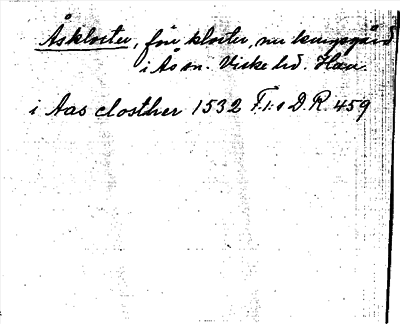 Åskloster, förr kloster, nu kungsgård
i Ås sn. Viske hd. Hall.
i Aas closther 1532 F.1:s D.R. 459